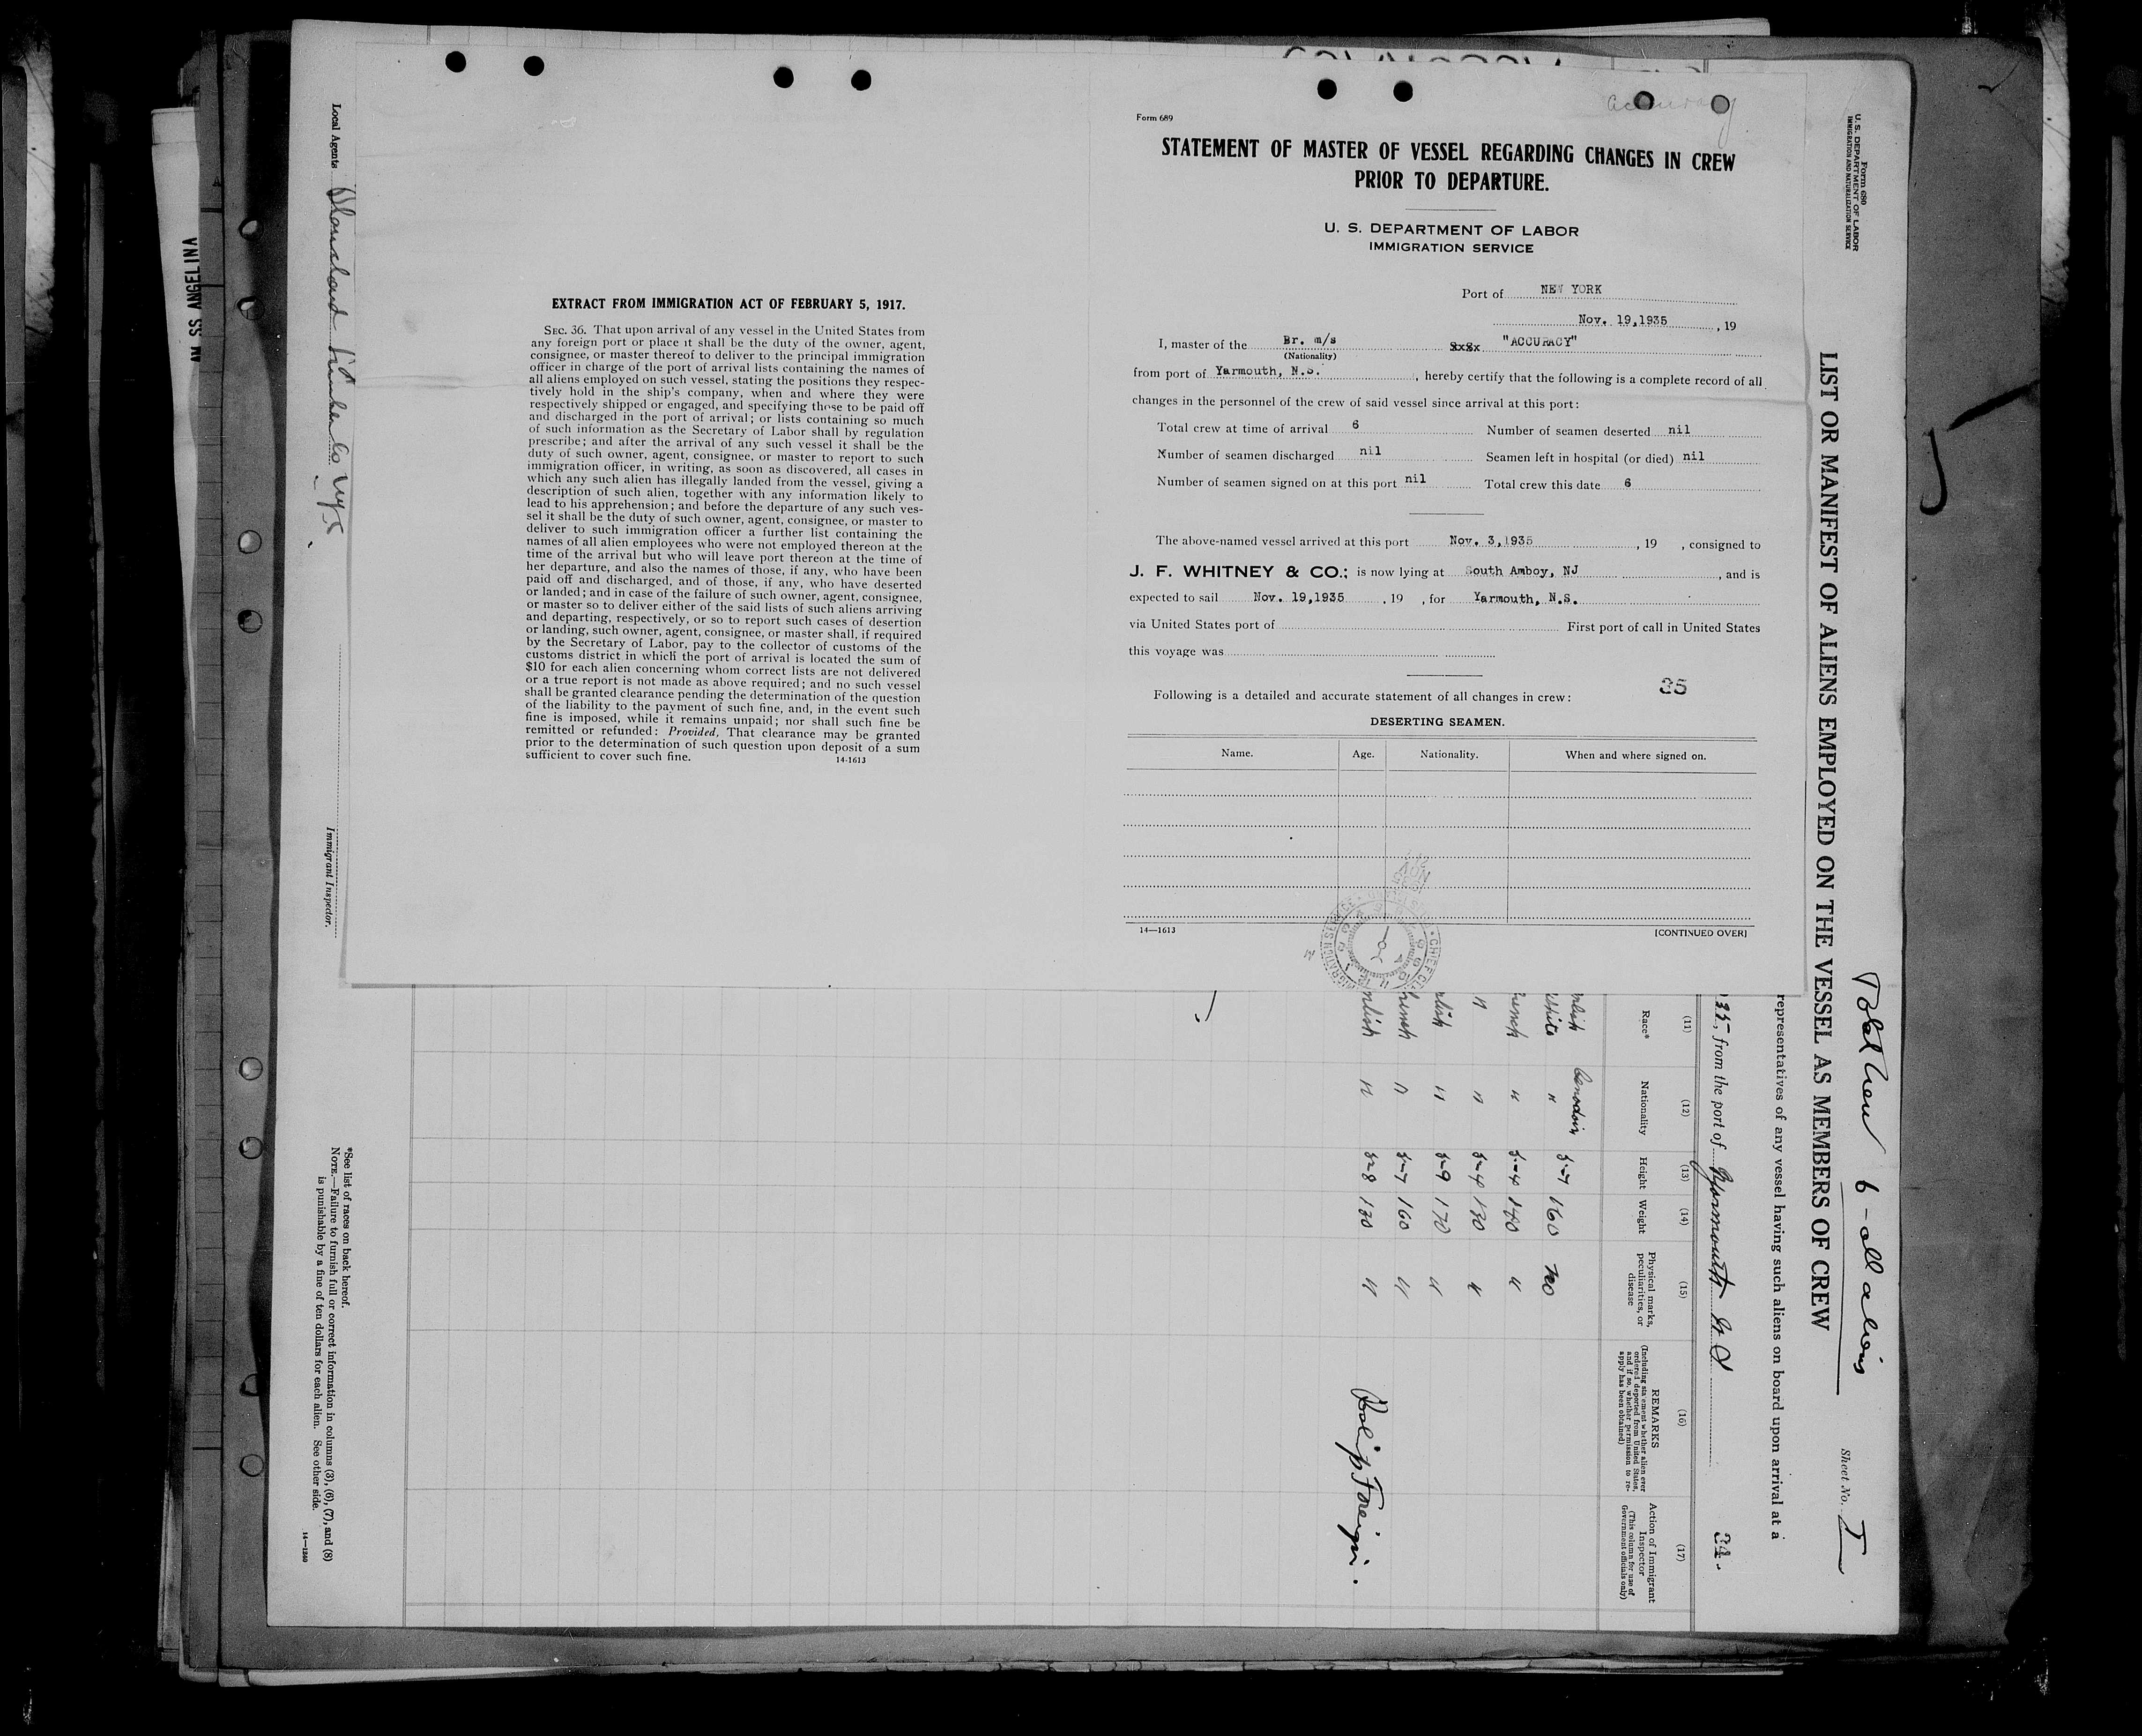 accuracy
Form 689
STATEMENT OF MASTER OF VESSEL REGARDING CHANGES IN CREW
PRIOR TO DEPARTURE.
U. S. DEPARTMENT OF LABOR
IMMIGRATION SERVICE
Port of NEW YORK
Nov. 19,1935, 19
I, master of the Br. m/s SxSx "ACCURACY"
(Nationality)
from port of Yarmouth, N.S., hereby certify that the following is a complete record of all
changes in the personnel of the crew of said vessel since arrival at this port:
Total crew at time of arrival 6 Number of seamen deserted nil
Number of seamen discharged nil Seamen left in hospital (or died) nil
Number of seamen signed on at this port nil Total crew this date 6
The above-named vessel arrived at this port Nov. 3,1935, 19 , consigned to
J. F. WHITNEY & CO.; is now lying at South Amboy, NJ, and is
expected to sail Nov. 19,1935, 19 , for Yarmouth, N.S.
via United States port of First port of call in United States
this voyage was
35
Following is a detailed and accurate statement of all changes in crew:
DESERTING SEAMEN.
Name. Age. Nationality. When and where signed on.
14—1613 [CONTINUED OVER]
EXTRACT FROM IMMIGRATION ACT OF FEBRUARY 5, 1917.
SEC. 36. That upon arrival of any vessel in the United States from
any foreign port or place it shall be the duty of the owner, agent,
consignee, or master thereof to deliver to the principal immigration
officer in charge of the port of arrival lists containing the names of
all aliens employed on such vessel, stating the positions they respec-
tively hold in the ship's company, when and where they were
respectively shipped or engaged, and specifying those to be paid off
and discharged in the port of arrival; or lists containing so much
of such information as the Secretary of Labor shall by regulation
prescribe; and after the arrival of any such vessel it shall be the
duty of such owner, agent, consignee, or master to report to such
immigration officer, in writing, as soon as discovered, all cases in
which any such alien has illegally landed from the vessel, giving a
description of such alien, together with any information likely to
lead to his apprehension; and before the departure of any such ves-
sel it shall be the duty of such owner, agent, consignee, or master to
deliver to such immigration officer a further list containing the
names of all alien employees who were not employed thereon at the
time of the arrival but who will leave port thereon at the time of
her departure, and also the names of those, if any, who have been
paid off and discharged, and of those, if any, who have deserted
or landed; and in case of the failure of such owner, agent, consignee,
or master so to deliver either of the said lists of such aliens arriving
and departing, respectively, or so to report such cases of desertion
or landing, such owner, agent, consignee, or master shall, if required
by the Secretary of Labor, pay to the collector of customs of the
customs district in which the port of arrival is located the sum of
$10 for each alien concerning whom correct lists are not delivered
or a true report is not made as above required; and no such vessel
shall be granted clearance pending the determination of the question
of the liability to the payment of such fine, and, in the event such
fine is imposed, while it remains unpaid; nor shall such fine be
remitted or refunded: Provided, That clearance may be granted
prior to the determination of such question upon deposit of a sum
sufficient to cover such fine. 14-1613
AM SS ANGELINA
Form 680
U. S. DEPARTMENT OF LABOR
IMMIGRATION AND NATURALIZATION SERVICE
Total Crew 6 - all aliens
Sheet No. 1
LIST OR MANIFEST OF ALIENS EMPLOYED ON THE VESSEL AS MEMBERS OF CREW
representatives of any vessel having such aliens on board upon arrival at a
35, from the port of Yarmouth N S 34
(11) (12) (13) (14) (15) (16) (17)
Race* Nationality Height Weight Physical marks, peculiarities, or disease REMARKS (Including statement whether alien ever ordered deported from United States, and if so, whether permission to reapply has been obtained) Action of Immigrant Inspector (This column for use of Government officials only)
nlish Canadain
White " 5-7 160 no
rench " 5-4 140 "
" " 5-4 130 "
nlish " 5-9 170 "
rench " 5-7 160 "
nlish " 5-8 130 "
Foreign.
Local Agents
Immigrant Inspector.
*See list of races on back hereof.
NOTE.—Failure to furnish full or correct information in columns (3), (6), (7), and (8)
is punishable by a fine of ten dollars for each alien. See other side.
14—1240